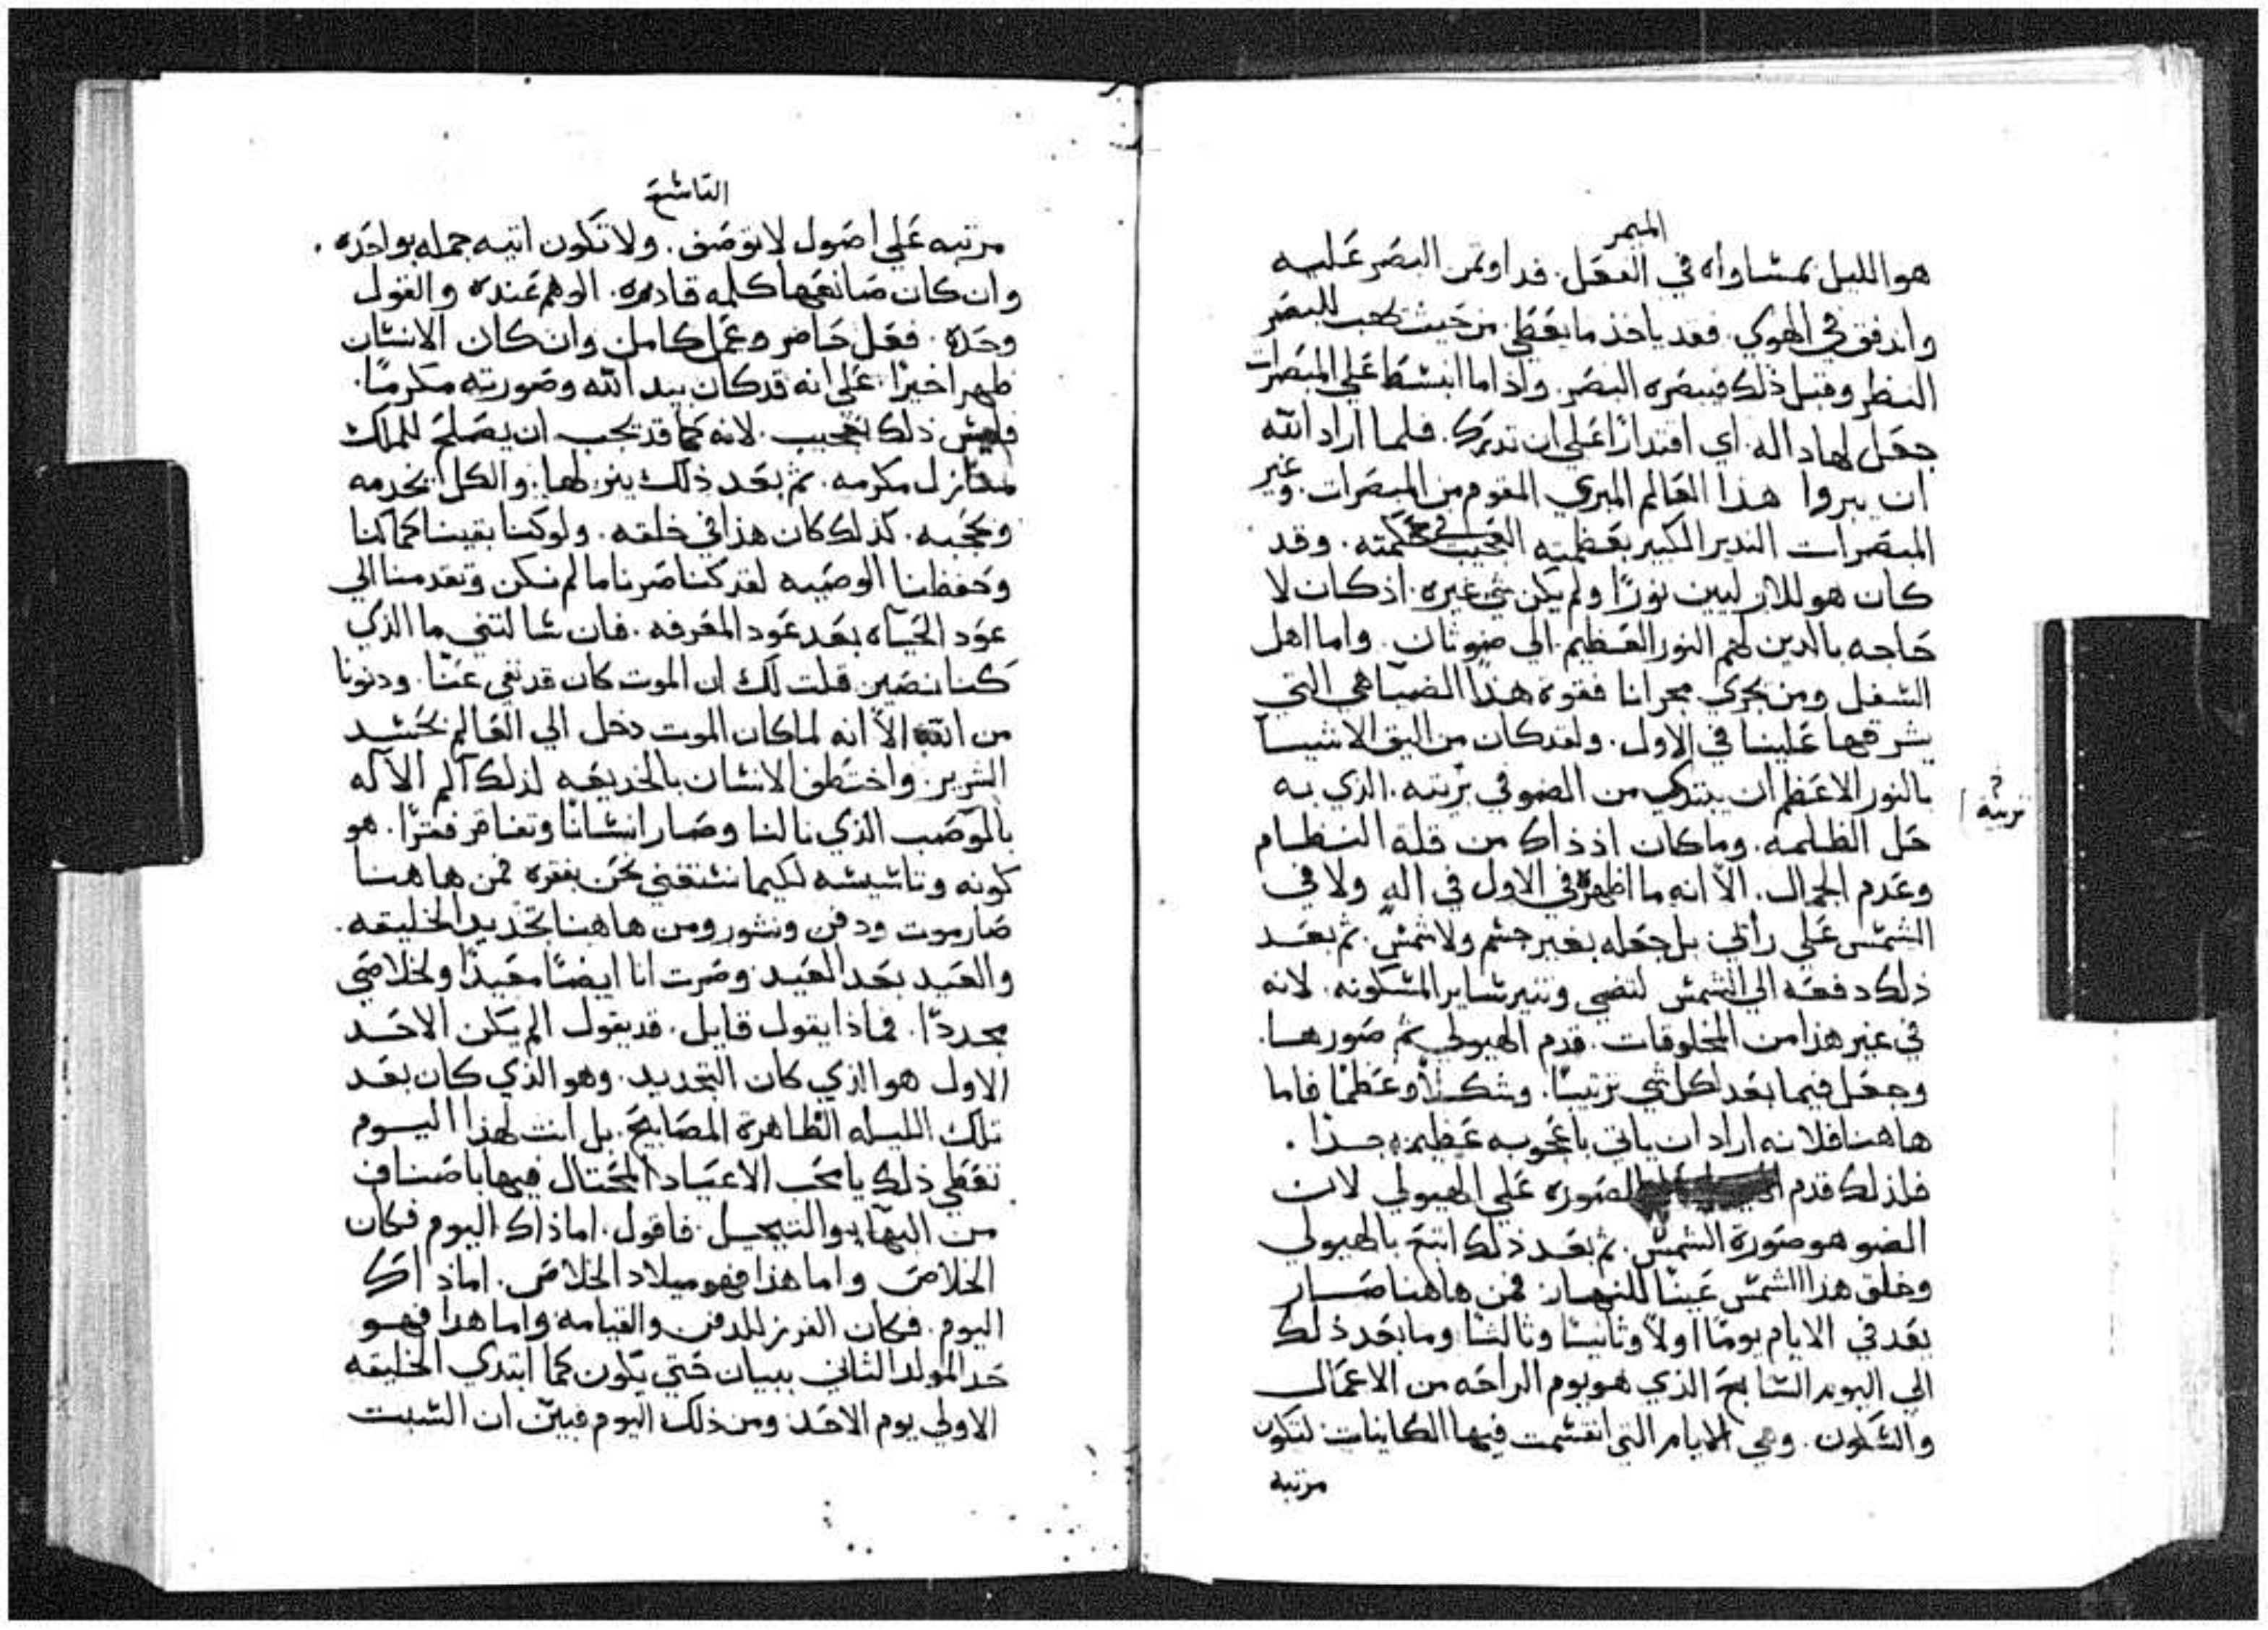 الميمر
هو الليل بمساواه في العقل. فداوتمن البصر عليه
واندفق في الهوي. فقد ياخذ ما يعطي من حيث يهب للبصر
النظر وقبل ذلك فيبصره البصر. واذا ما انبسط علي المبصرات
جعل لها داله. اي اقتدارًا علي ان تدرك. فلما اراد الله
ان يبروا هذا العالم المبري المقوم من المبصرات. وغير
المبصرات النذير الكبير بعظمته العجيب في حكمته. وقد
كان هو للازليين نورًا ولم يكن شي غيره. اذ كان لا
حاجه بالدين لهم النور العظيم. الي ضو ثان. واما اهل
السفل ومن يجري مجرانا فقوة هذا الضيا هي التي
يشرقها علينا في الاول. ولقد كان من اليق الاشيا
بالنور الاعظم ان يبتدي من الضو في بريته. الذي به
حل الظلمه. وما كان اذ ذاك من قلة النظام
وعدم الجمال. الّا انه ما اظهره في الاول في اله ولا في
الشمس علي رأيي بل جعله بغير جسم ولا شمس. ثم بعد
ذلك دفعه الي الشمس لتضي وتنير ساير المسكونه. لانه
في غير هذا من المخلوقات. قدم الهيولي ثم صورها.
وجعل فيما بعد لكل شي ترتيبًا. وشكلًا وعظمًا فاما
هاهنا فلانه اراد ان ياتي باعجوبه عظيمه جدًا.
فلذلك قدم الصوره علي الهيولي لان
الضو هو صورة الشمس. ثم بعد ذلك اتبع بالهيولي
وخلق هذا الشمس عينًا للنهار فمن هاهنا صار
يعد في الايام يومًا اولًا وثانيًا وثالثًا وما بعد ذلك
الي اليوم السابع الذي هو يوم الراحه من الاعمال
والسكون. وهي الايام التي انقسمت فيها الكاينات لتكون
مرتبه
تربته
؟
التاسع
مرتبه علي اصول لا توصف. ولا تكون اتيه جمله بواحده.
وان كان صانعها كلمه قادره. الوهم عنده والقول
وحده. فعل حاضر وعمل كامل وان كان الانسان
ظهر اخيرًا. علي انه قد كان بيد الله وصورته مكرمًا.
فليس ذلك بعجيب. لانه كما قد يجب ان يصلح للملك
منازل مكرمه. ثم بعد ذلك ينزلها. والكل يخدمه
ويحجبه. كذلك كان هذا في خلقه. ولو كنا بقينا كما كنا
وحفظنا الوصيه لقد كنا صرنا ما لم نكن وتقدمنا الي
عود الحياه بعد عود المعرفه. فان سالتني ما الذي
كنا نصير. قلت لك ان الموت كان قد نفي عنا. ودنونا
من الله الّا انه لما كان الموت دخل الي العالم بحسد
الشرير. واختطف الانسان بالخديعه لذلك آلم الآله
بالوصب الذي نالنا وصار انسانًا وتفاقر فقرًا. هو
كونه وتاسيسه لكيما نستغني نحن بفقره فمن هاهنا
صار موت ودفن ونشور ومن هاهنا تجديد الخليقه.
والعيد بعد العيد. وصرت انا ايضًا معيدًا ولخلاصي
مجددًا. فماذا يقول قايل. قد يقول الم يكن الاحد
الاول هو الذي كان التجديد. وهو الذي كان بعد
تلك الليله الظاهرة المصابيح. بل انت لهذا اليوم
تعطي ذلك يا محب الاعياد المحتال فيها باصناف
من البهاء والتبجيل. فاقول. اما ذاك اليوم فكان
الخلاص واما هذا فهو ميلاد الخلاص. اما ذاك
اليوم. فكان الفرز للدفن والقيامه واما هذا فهو
حد المولد الثاني ببيان حتي يكون كما ابتدي الخليقه
الاولي يوم الاحد ومن ذلك اليوم فبين ان السبت